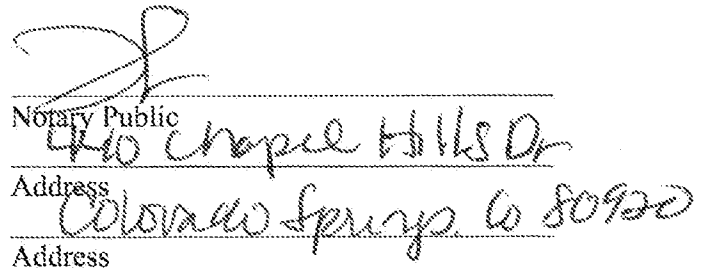 Notary Public
Chapel Hills Dr
Address
Colorado Springs. Co 80920
Address